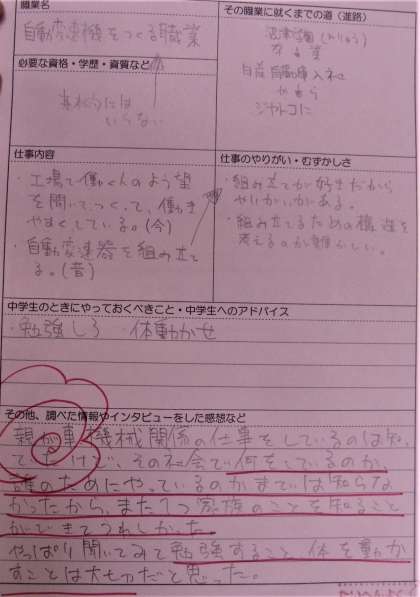 職業名
自動変速機をつくる職業
その職業に就くまでの道(進路)
自産自動車入社
ジヤトコに
必要な資格・学歴・資質など
いらない
仕事内容
・工場で働く人のよう望
を聞いてつくって、働き
やすくしている。(今)
・自動変速器を組み立て
る。(昔)
仕事のやりがい・むずかしさ
・組み立てが好きだから
やりがいがある。
・組み立てるための構造を
考えるのが難しい。
中学生のときにやっておくべきこと・中学生へのアドバイス
・勉強しろ ・体動かせ
その他、調べた情報やインタビューをした感想など
親が車機械関係の仕事をしているのは知っ
てたけど、その社会で何をしているのか、
誰のためにやっているのかまでは知らな
かったから、また1つ家族のことを知ること
ができてうれしかった。
やっぱり聞いてみて勉強すること、体を動か
すことは大切だと思った。